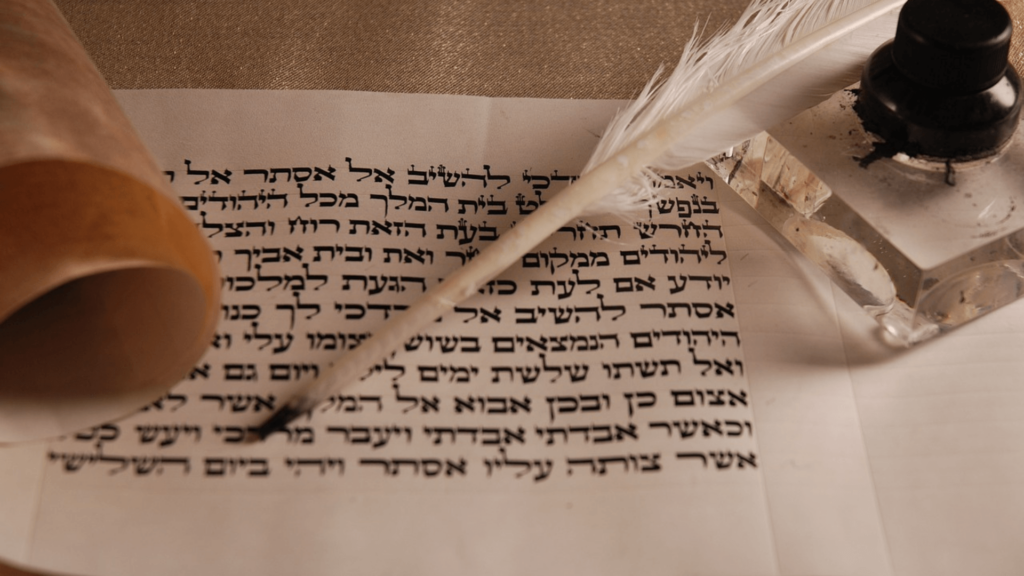 להשיב אל אסתר אל
בנפשך בית המלך מכל היהודים
החרש בעת הזאת רוח והצלה
ליהודים ממקום ואת ובית אביך
יודע אם לעת הגעת למלכות
אסתר להשיב אל לך כנוס
היהודים הנמצאים בשושן וצומו עלי
ואל תשתו שלשת ימים ויום גם
אצום כן ובכן אבוא אל המלך אשר
וכאשר אבדתי אבדתי ויעבר ויעש
אשר צותה עליו אסתר ויהי ביום השלישי